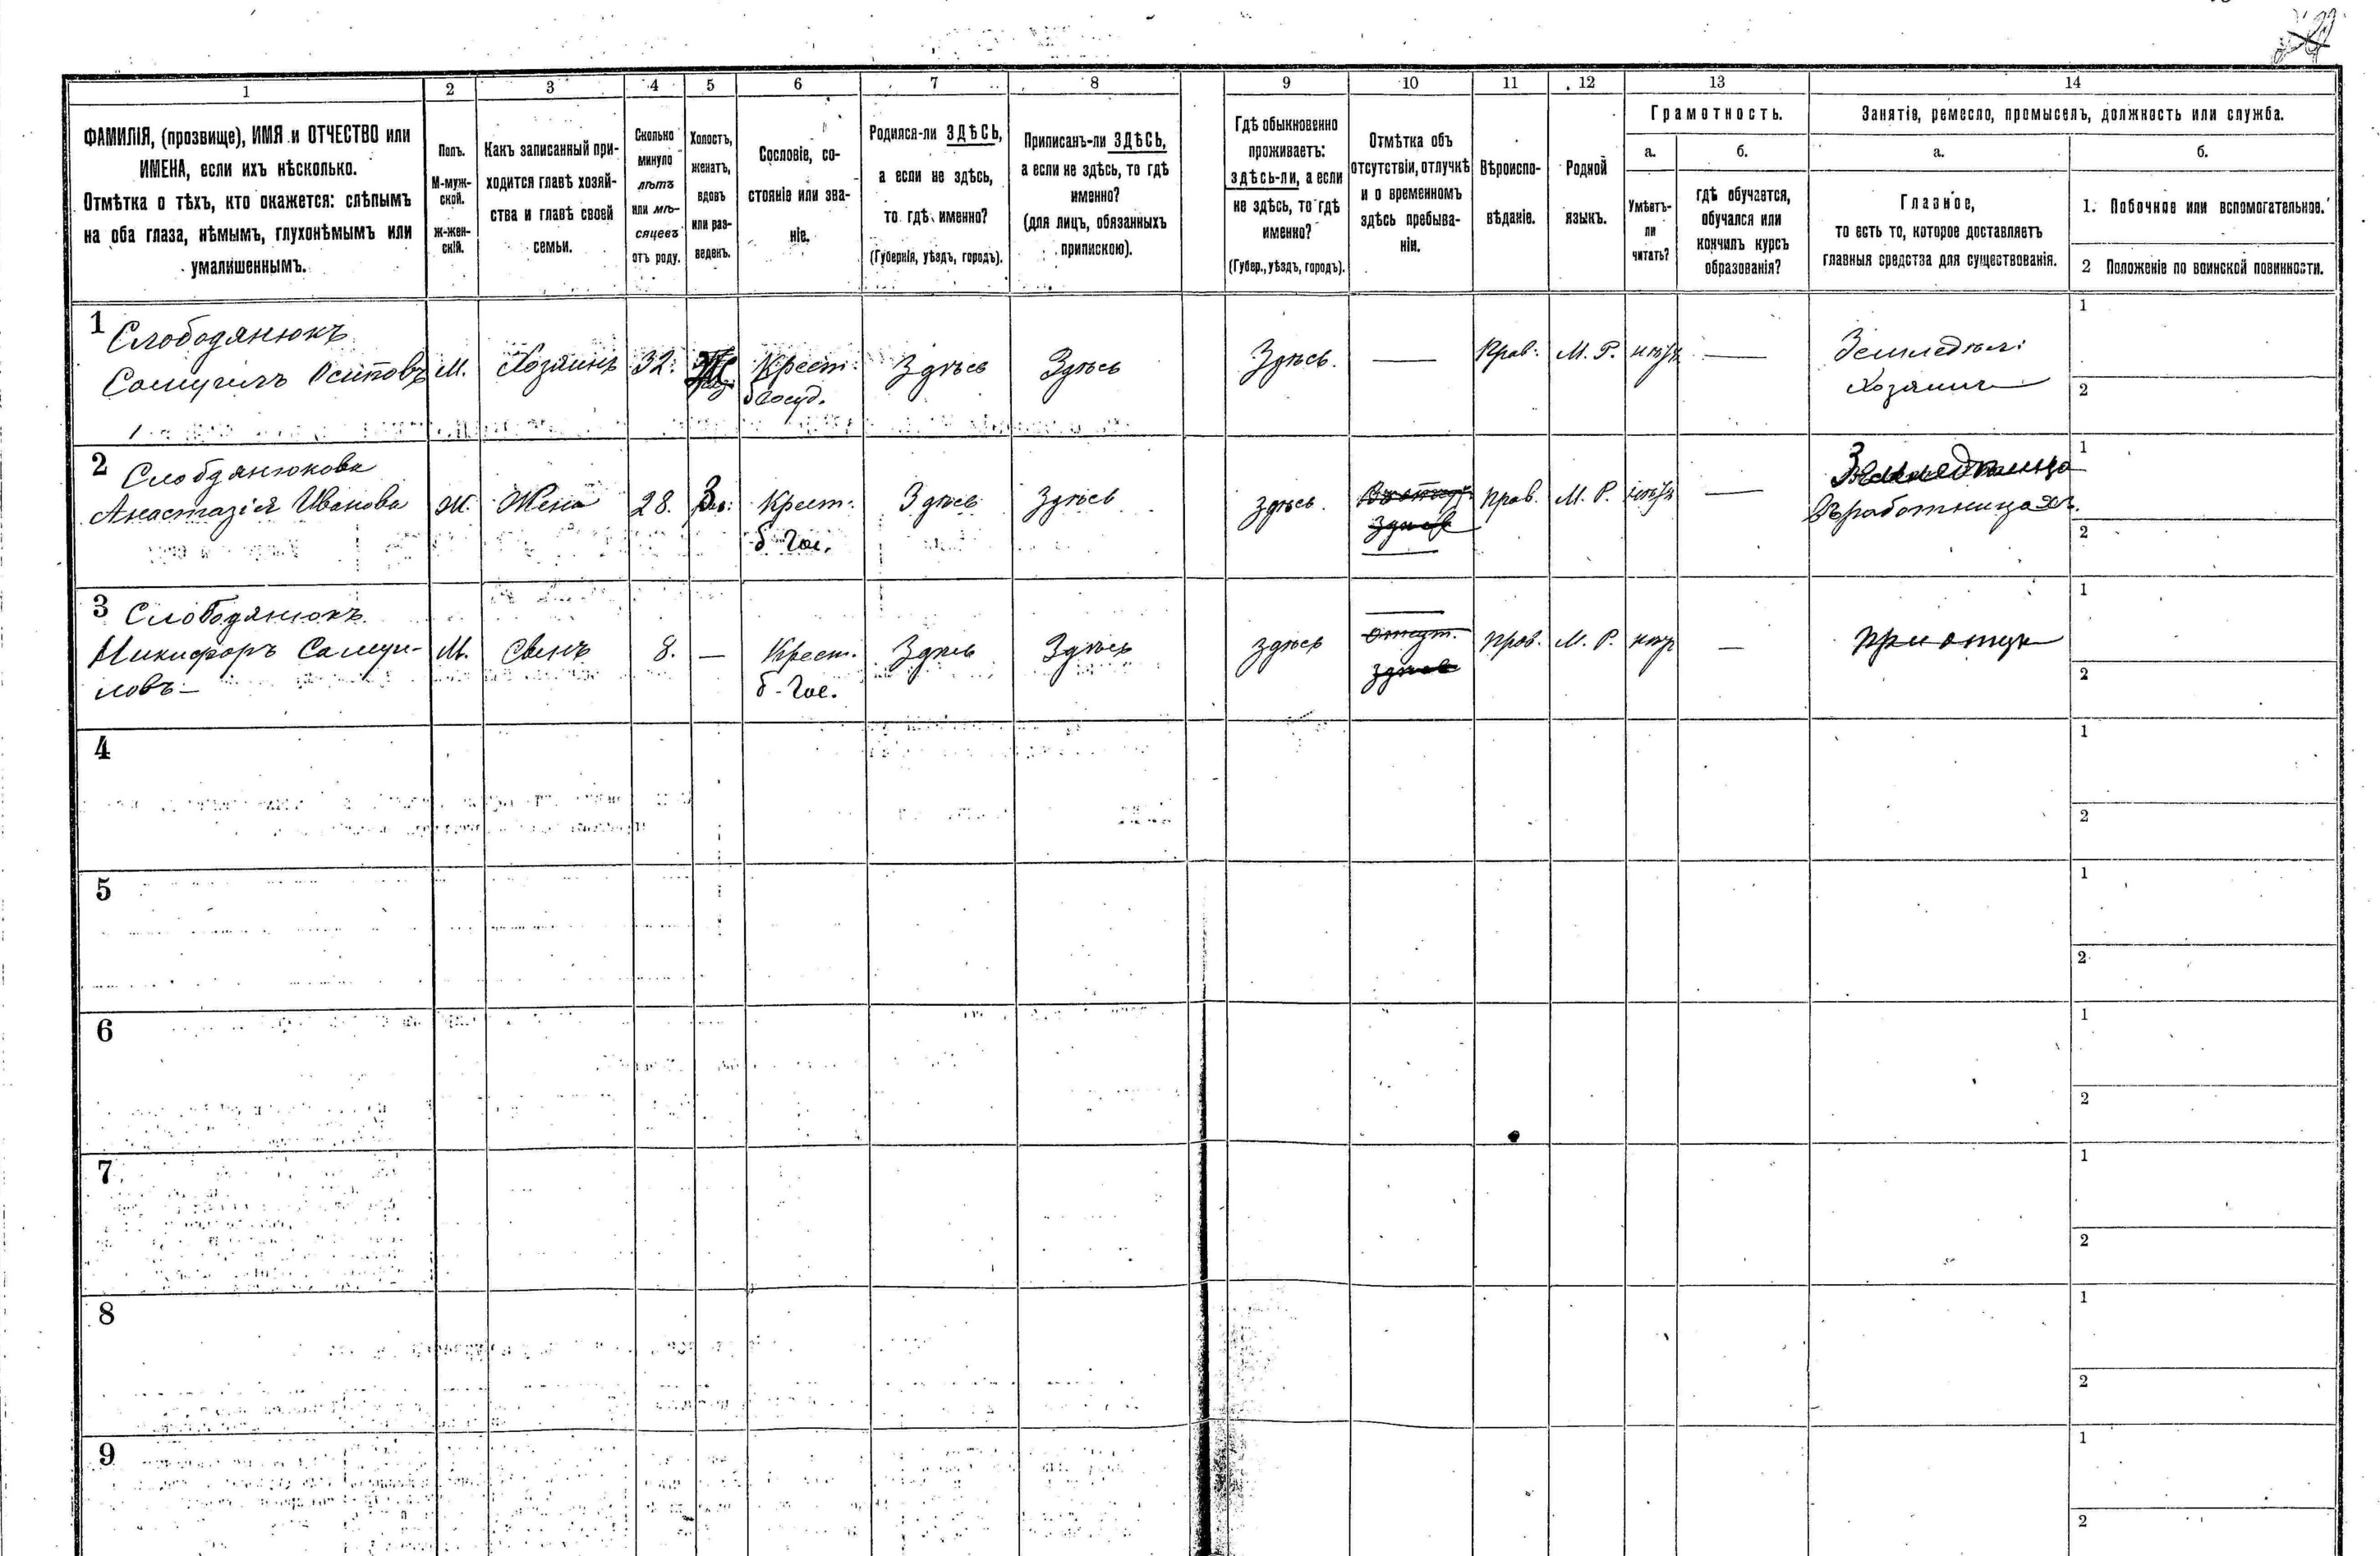 1
2
3
4
5
6
7
8
9
10
11
12
13
14
ФАМИЛІЯ, (прозвище), ИМЯ и ОТЧЕСТВО или
ИМЕНА, если ихъ нѣсколько.
Отмѣтка о тѣхъ, кто окажется: слѣпымъ
на оба глаза, нѣмымъ, глухонѣмымъ или
умалишеннымъ.
Полъ.
М-муж-
ской.
ж-жен-
скій.
Какъ записанный при-
ходится главѣ хозяй-
ства и главѣ своей
семьи.
Сколько
минуло
лѣтъ
или мѣ-
сяцевъ
отъ роду.
Холостъ,
женатъ,
вдовъ
или раз-
веденъ.
Сословіе, со-
стояніе или зва-
ніе.
Родился-ли ЗДѢСЬ,
а если не здѣсь,
то гдѣ именно?
(Губернія, уѣздъ, городъ).
Приписанъ-ли ЗДѢСЬ,
а если не здѣсь, то гдѣ
именно?
(для лицъ, обязанныхъ
припискою).
Гдѣ обыкновенно
проживаетъ:
здѣсь-ли, а если
не здѣсь, то гдѣ
именно?
(Губер., уѣздъ, городъ).
Отмѣтка объ
отсутствіи, отлучкѣ
и о временномъ
здѣсь пребыва-
ніи.
Вѣроиспо-
вѣданіе.
Родной
языкъ.
Грамотность.
а.
Умѣетъ-
ли
читать?
б.
гдѣ обучается,
обучался или
кончилъ курсъ
образованія?
Занятіе, ремесло, промыселъ, должность или служба.
а.
Главное,
то есть то, которое доставляетъ
главныя средства для существованія.
б.
1. Побочное или вспомогательное.
2 Положеніе по воинской повинности.
1 Слободянюкъ
Самуилъ Осиповъ
М.
Хозяинъ
32.
Крест.
б госуд.
Здѣсь
Здѣсь
Здѣсь.
—
Прав.
М. Р.
нѣтъ
—
Земледѣл:
Хозяинъ
1
2
2 Слобдянюкова
Анастазія Иванова
Ж.
Жена
28.
З
Крест.
б-Гос.
Здѣсь
Здѣсь
здѣсь.
здѣсь
Прав.
М. Р.
нѣтъ
—
Въ работницахъ.
1
2
3 Слободянюкъ
Никифоръ Самуи-
ловъ
М.
Сынъ
8.
—
Крест.
б-Гос.
Здѣсь
Здѣсь
здѣсь
отсут.
здѣсь
Прав.
М. Р.
нѣт
—
При отцѣ
1
2
4
1
2
5
1
2
6
1
2
7
1
2
8
1
2
9
1
2